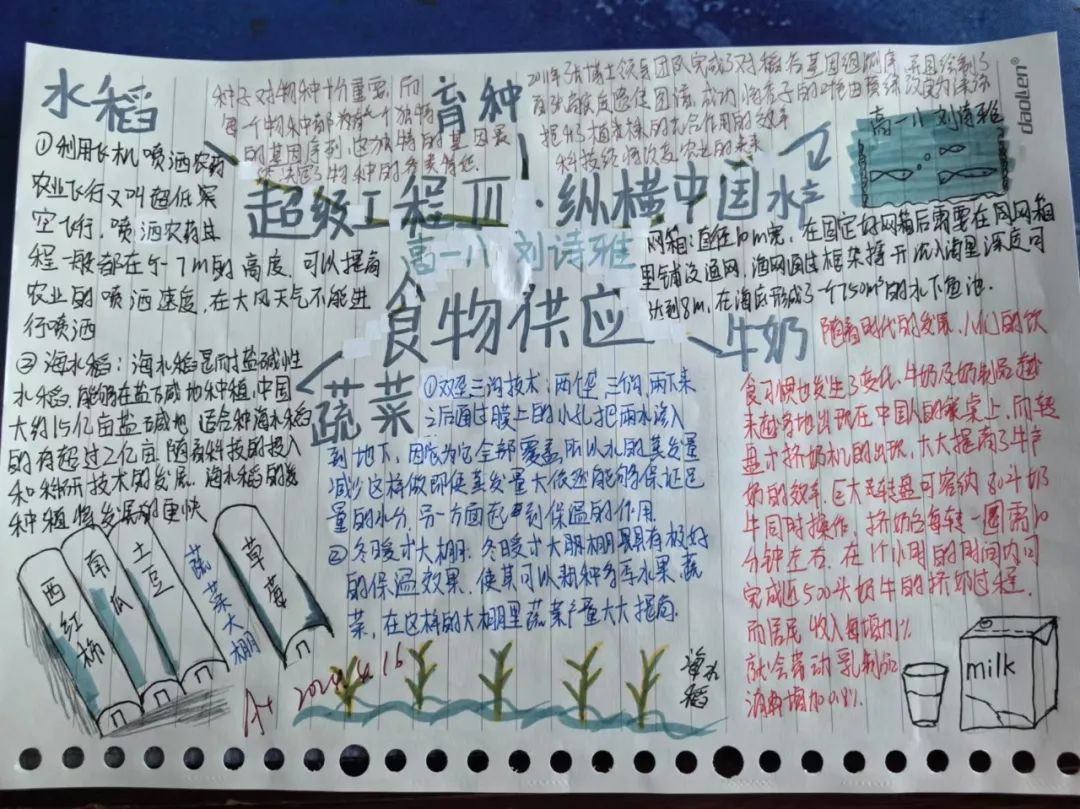 水稻
①利用飞机喷洒农药
农业飞行又叫超低案
空飞行,喷洒农药其
程一般都在5-7m的高度,可以提高
农业的喷洒速度,在大风天气不能进
行喷洒
②海水稻:海水稻是耐盐碱性
水稻,能够在盐碱地种植,中国
大约15亿亩盐碱地 适合种海水稻
的有超过2亿亩,随着科技的投入
和科研技术的发展,海水稻的
种植将发展的更快
种子对物种十分重要,而
每一个物种都有一个独特
的基因序列,这独特的基因
决定了物种的
育种
团队完成了对
成功
的光合作用的效率
科技终将改变农业的未来
水产
高一八 刘诗雅
daolen
超级工程Ⅲ·纵横中国
高一八 刘诗雅
食物供应
网箱:直径10m宽,在固定好网箱后需要在周网箱
里铺设通网,渔网通过框架撑开沉入海里深度可
达到8m,在海底形成了一个750m³的水下鱼池.
蔬菜
①双垄三沟技术:两个垄,三个沟,雨下来
之后通过膜上的小孔把雨水渗入
到地下,因为它全部覆盖所以水的蒸发量
减少这样做即使蒸发量大依然能够保证足
量的水分,另一方面起到保温的作用.
②冬日暖寸大棚:冬日暖寸大朋棚具有极好
的保温效果,使其可以种多年水果、蔬
菜,在这样的大棚里蔬菜产量大大提高.
牛奶
随着时代的发展,人们的饮
食习惯也发生了变化,牛奶及奶制品越
来越多地出现在中国人的餐桌上,而转
盘寸挤奶机的出现,大大提高了牛产
奶的效率,巨大转盘可容纳80斗奶
牛同时操作,挤奶台每转一圈需10
分钟左右,在1个小时的时间内可
完成近500头奶牛的挤奶过程.
而居民收入每增加1%
就会带动乳制品
消费增加0.8%.
西红柿
南瓜
土豆
蔬菜大棚
草莓
A+ 2024.4.16
海水稻
milk